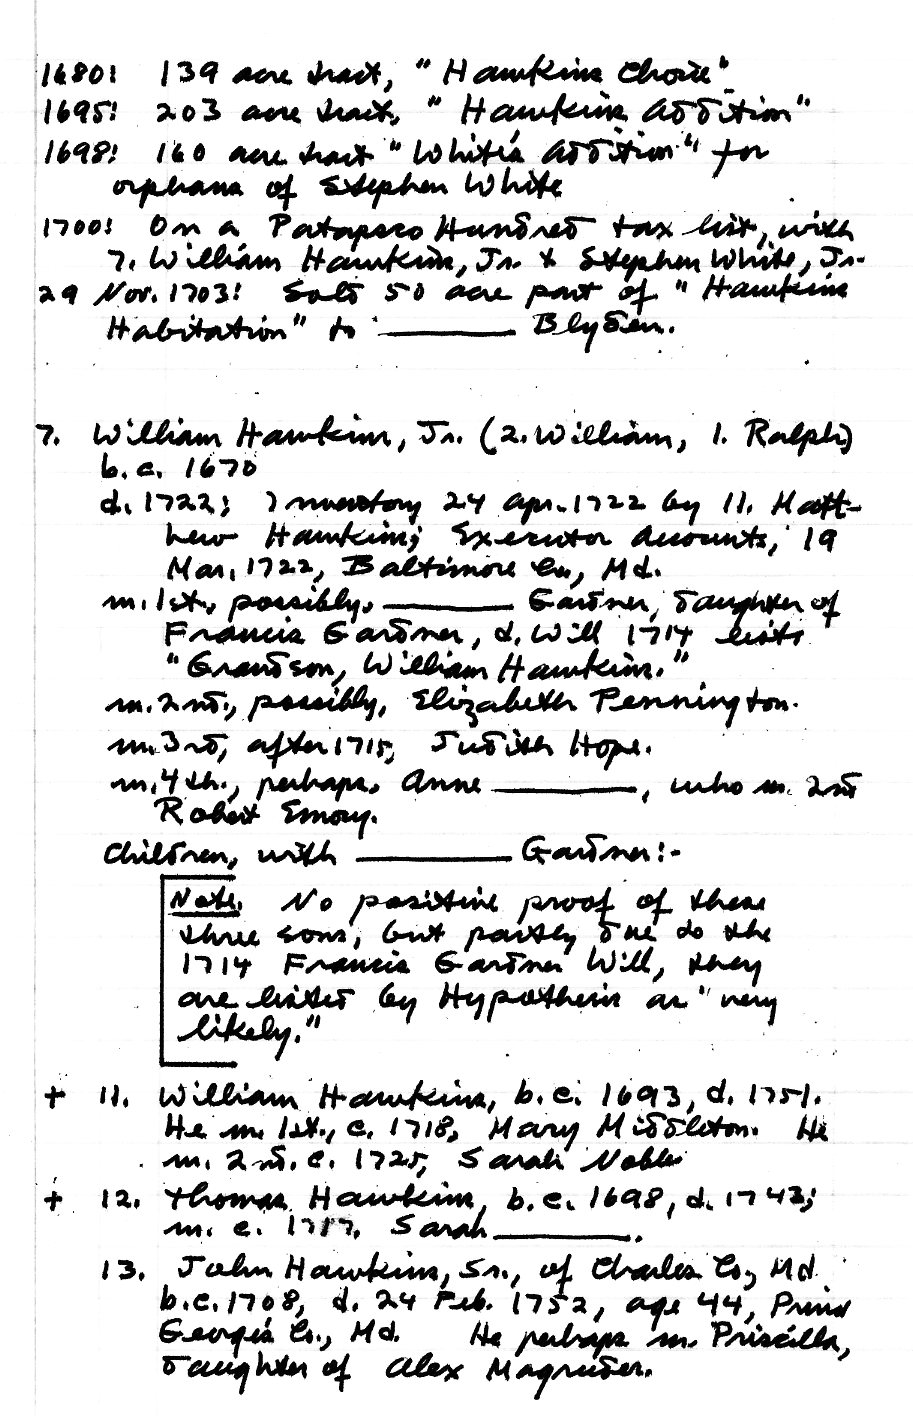 1680: 139 acre tract, "Hawkins Choice"
1695: 203 acre tract, "Hawkins Addition"
1698: 160 acre tract "White's Addition" for
orphans of Stephen White
1700: On a Patapsco Hundred tax list, with
7. William Hawkins, Jr. & Stephen White, Jr.
29 Nov. 1703: Sold 50 acre part of "Hawkins
Habitation" to ______ Blyden.
7. William Hawkins, Jr. (2. William, 1. Ralph)
b. c. 1670
d. 1722; Inventory 24 Apr. 1722 by 11. Matt-
hew Hawkins; Executor Accounts, 19
Mar. 1722, Baltimore Co., Md.
m. 1st., possibly, ______ Gardner, daughter of
Francis Gardner, d. Will 1714 lists
"Grandson, William Hawkins."
m. 2nd., possibly, Elizabeth Pennington.
m. 3rd, after 1715, Judith Hope.
m. 4th., perhaps, Anne ______, who m. 2nd
Robert Emory.
Children, with ______ Gardner:-
Note. No positive proof of these
three sons, but partly due to the
1714 Francis Gardner Will, they
are listed by Hypothesis as "very
likely."
+ 11. William Hawkins, b. c. 1693, d. 1751.
He m. 1st., c. 1718, Mary Middleton. He
m. 2nd. c. 1725, Sarah Noble
+ 12. Thomas Hawkins, b. c. 1698, d. 1743;
m. c. 1717, Sarah ______.
13. John Hawkins, Sr., of Charles Co., Md.
b. c. 1708, d. 24 Feb. 1752, age 44, Prince
Georges Co., Md. He perhaps m. Priscilla,
daughter of Alex Magruder.